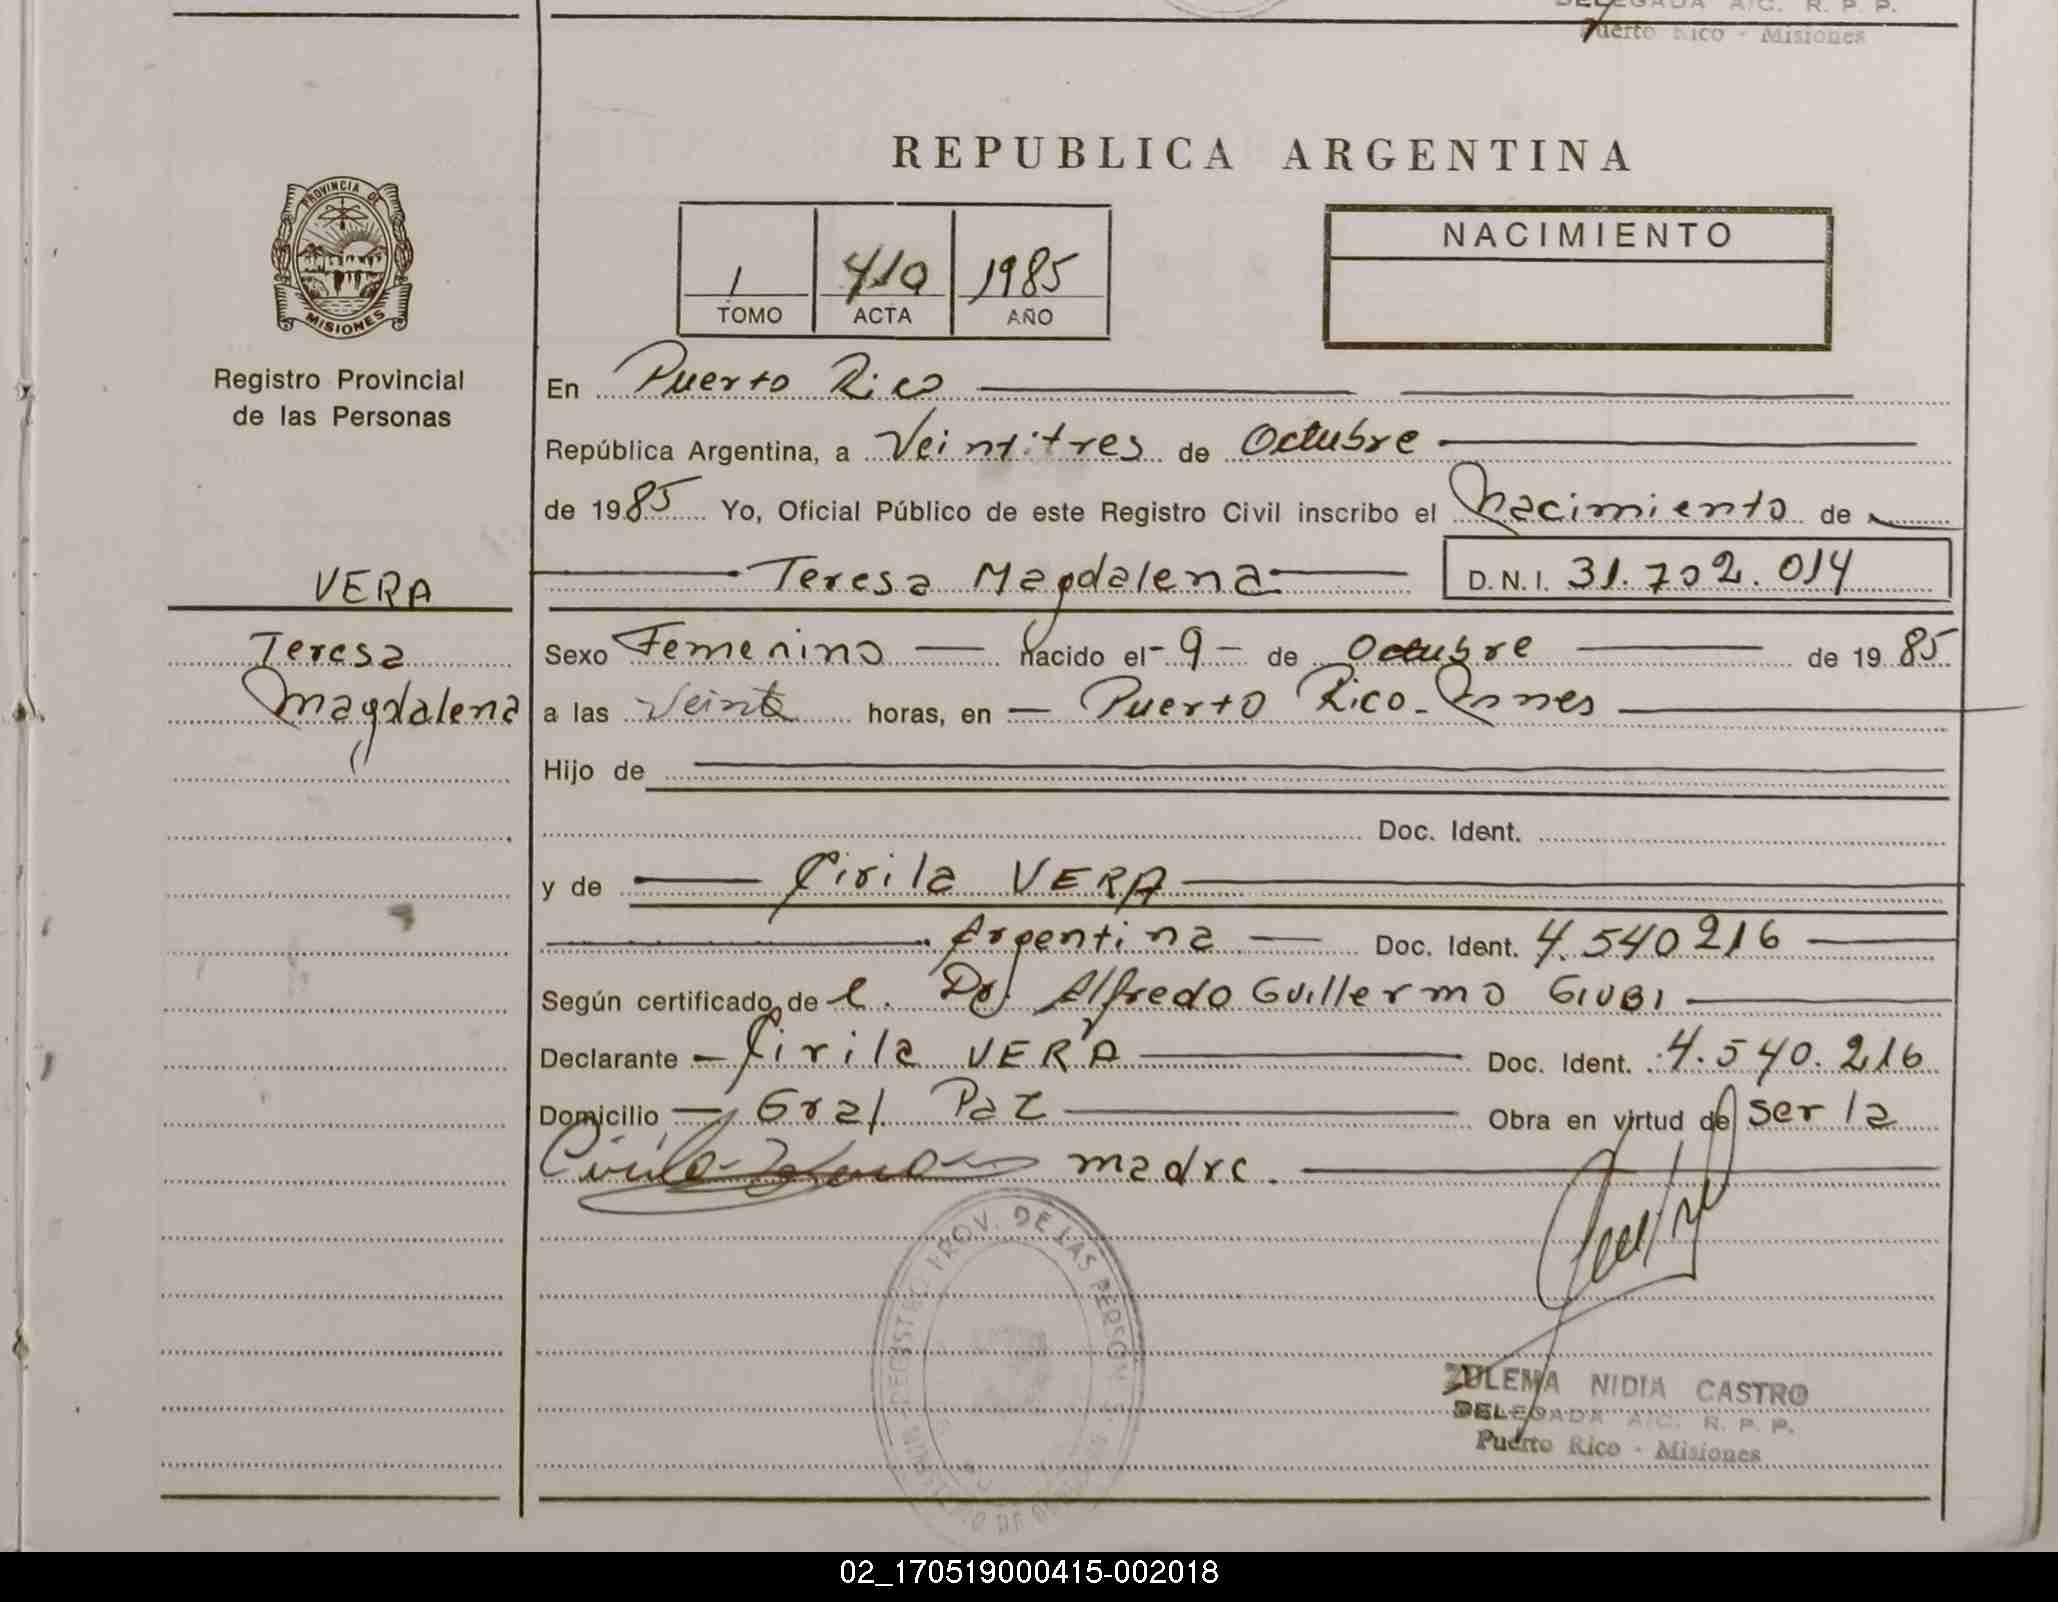 DELEGADA A/C. R. P. P.
Puerto Rico - Misiones
REPUBLICA ARGENTINA
PROVINCIA DE
MISIONES
Registro Provincial
de las Personas
1 410 1985
TOMO ACTA AÑO
NACIMIENTO
En Puerto Rico
República Argentina, a Veintitres de Octubre
de 1985 Yo, Oficial Público de este Registro Civil inscribo el Nacimiento de
VERA
Teresa Magdalena D.N.I. 31.702.014
Teresa
Magdalena
Sexo Femenino nacido el - 9 - de Octubre de 1985
a las Veinte horas, en Puerto Rico - Mnes
Hijo de
Doc. Ident.
y de Cirila VERA
Argentina Doc. Ident. 4.540216
Según certificado de l. Dr. Alfredo Guillermo GIUBI
Declarante Cirila VERA Doc. Ident. 4.540.216
Domicilio Gral. Paz Obra en virtud de ser la
Cirila madre.
REGISTRO PROV. DE LAS PERSONAS
MINISTERIO DE GOBIERNO
ZULEMA NIDIA CASTRO
DELEGADA A/C. R. P. P.
Puerto Rico - Misiones
02_170519000415-002018